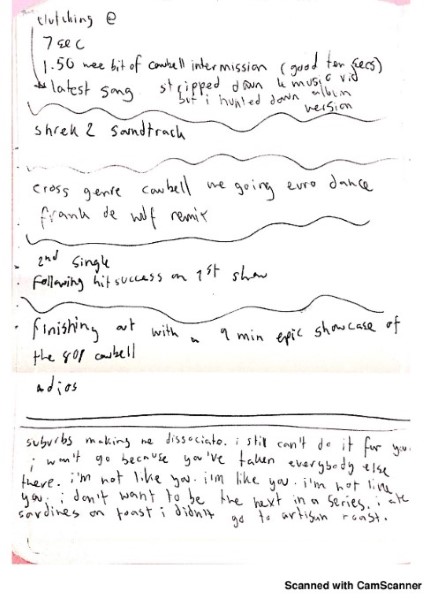 clutching @
7 sec
1.50 wee bit of cowbell intermission (good ten secs)
latest song stripped down 4 music vid
but i hunted down album
version
shrek 2 soundtrack
cross genre cowbell we going euro dance
frank de wulf remix
2nd single
following hit success on 1st show
finishing out with a 9 min epic showcase of
the 808 cowbell
adios
suburbs making me dissociate. i still can't do it for you.
i won't go because you've taken everybody else
there. i'm not like you. i'm like you. i'm not like
you. i don't want to be the next in a series. i ate
sardines on toast i didn't go to artisan roast.
Scanned with CamScanner